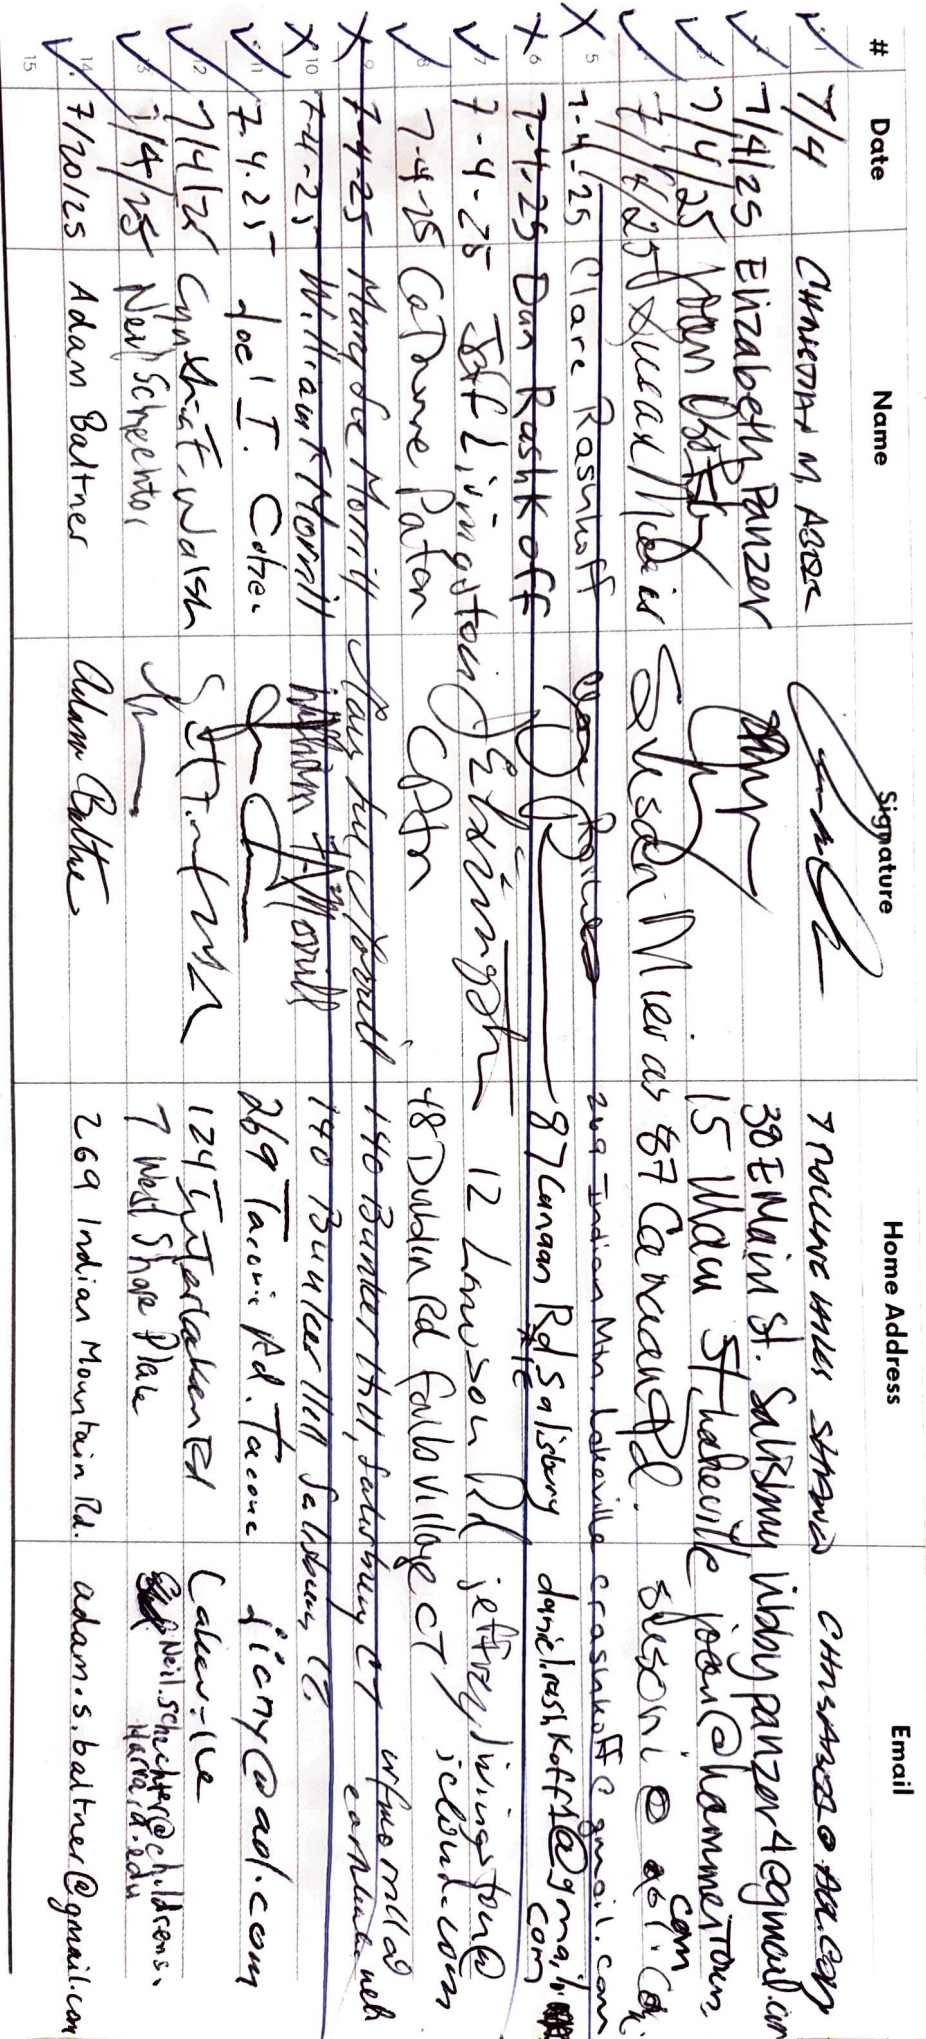 # Date Name Signature Home Address Email
✓ 1 7/4 CHRISTIAN M
✓ 2 7/4/25 Elizabeth Panzer 38 E Main St. Salisbury libbypanzer4@gmail.com
✓ 3 7/4/25 Joan 15 Main St, Lakeville joan@hammertown.com
✓ 4 7/4/25 Susan 87 Canaan Rd.
X 5 7-4-25 Clare Rashkoff 269 Indian Mtn. Lakeville crashkoff@gmail.com
X 6 7-4-25 Dan Rashkoff 87 Canaan Rd Salisbury danielrashkoff1@gmail.com
✓ 7 7-4-25 Jeff Livingston 12 Lawson Rd jeffreylivingston@icloud.com
✓ 8 7-4-25 Catherine Paton 48 Dublin Rd Falls Village CT
X 9 7-4-25 Margine Morrill 140 Bunker Hill, Salisbury CT
X 10 7-4-25 William F Morrill William F Morrill 140 Bunker Hill Salisbury Ct.
✓ 11 7.4.25 Joel I. 269 Taconic Rd. Taconic jicny@aol.com
✓ 12 7/4/25 Cynthia T. Walsh 124 Interlaken Rd Lakeville
✓ 13 7/4/25 Neil Schechter 7 West Shore Place Neil.schechter@childrens.harvard.edu
✓ 14 7/20/25 Adam Baltner 269 Indian Mountain Rd. adam.s.baltner@gmail.com
15